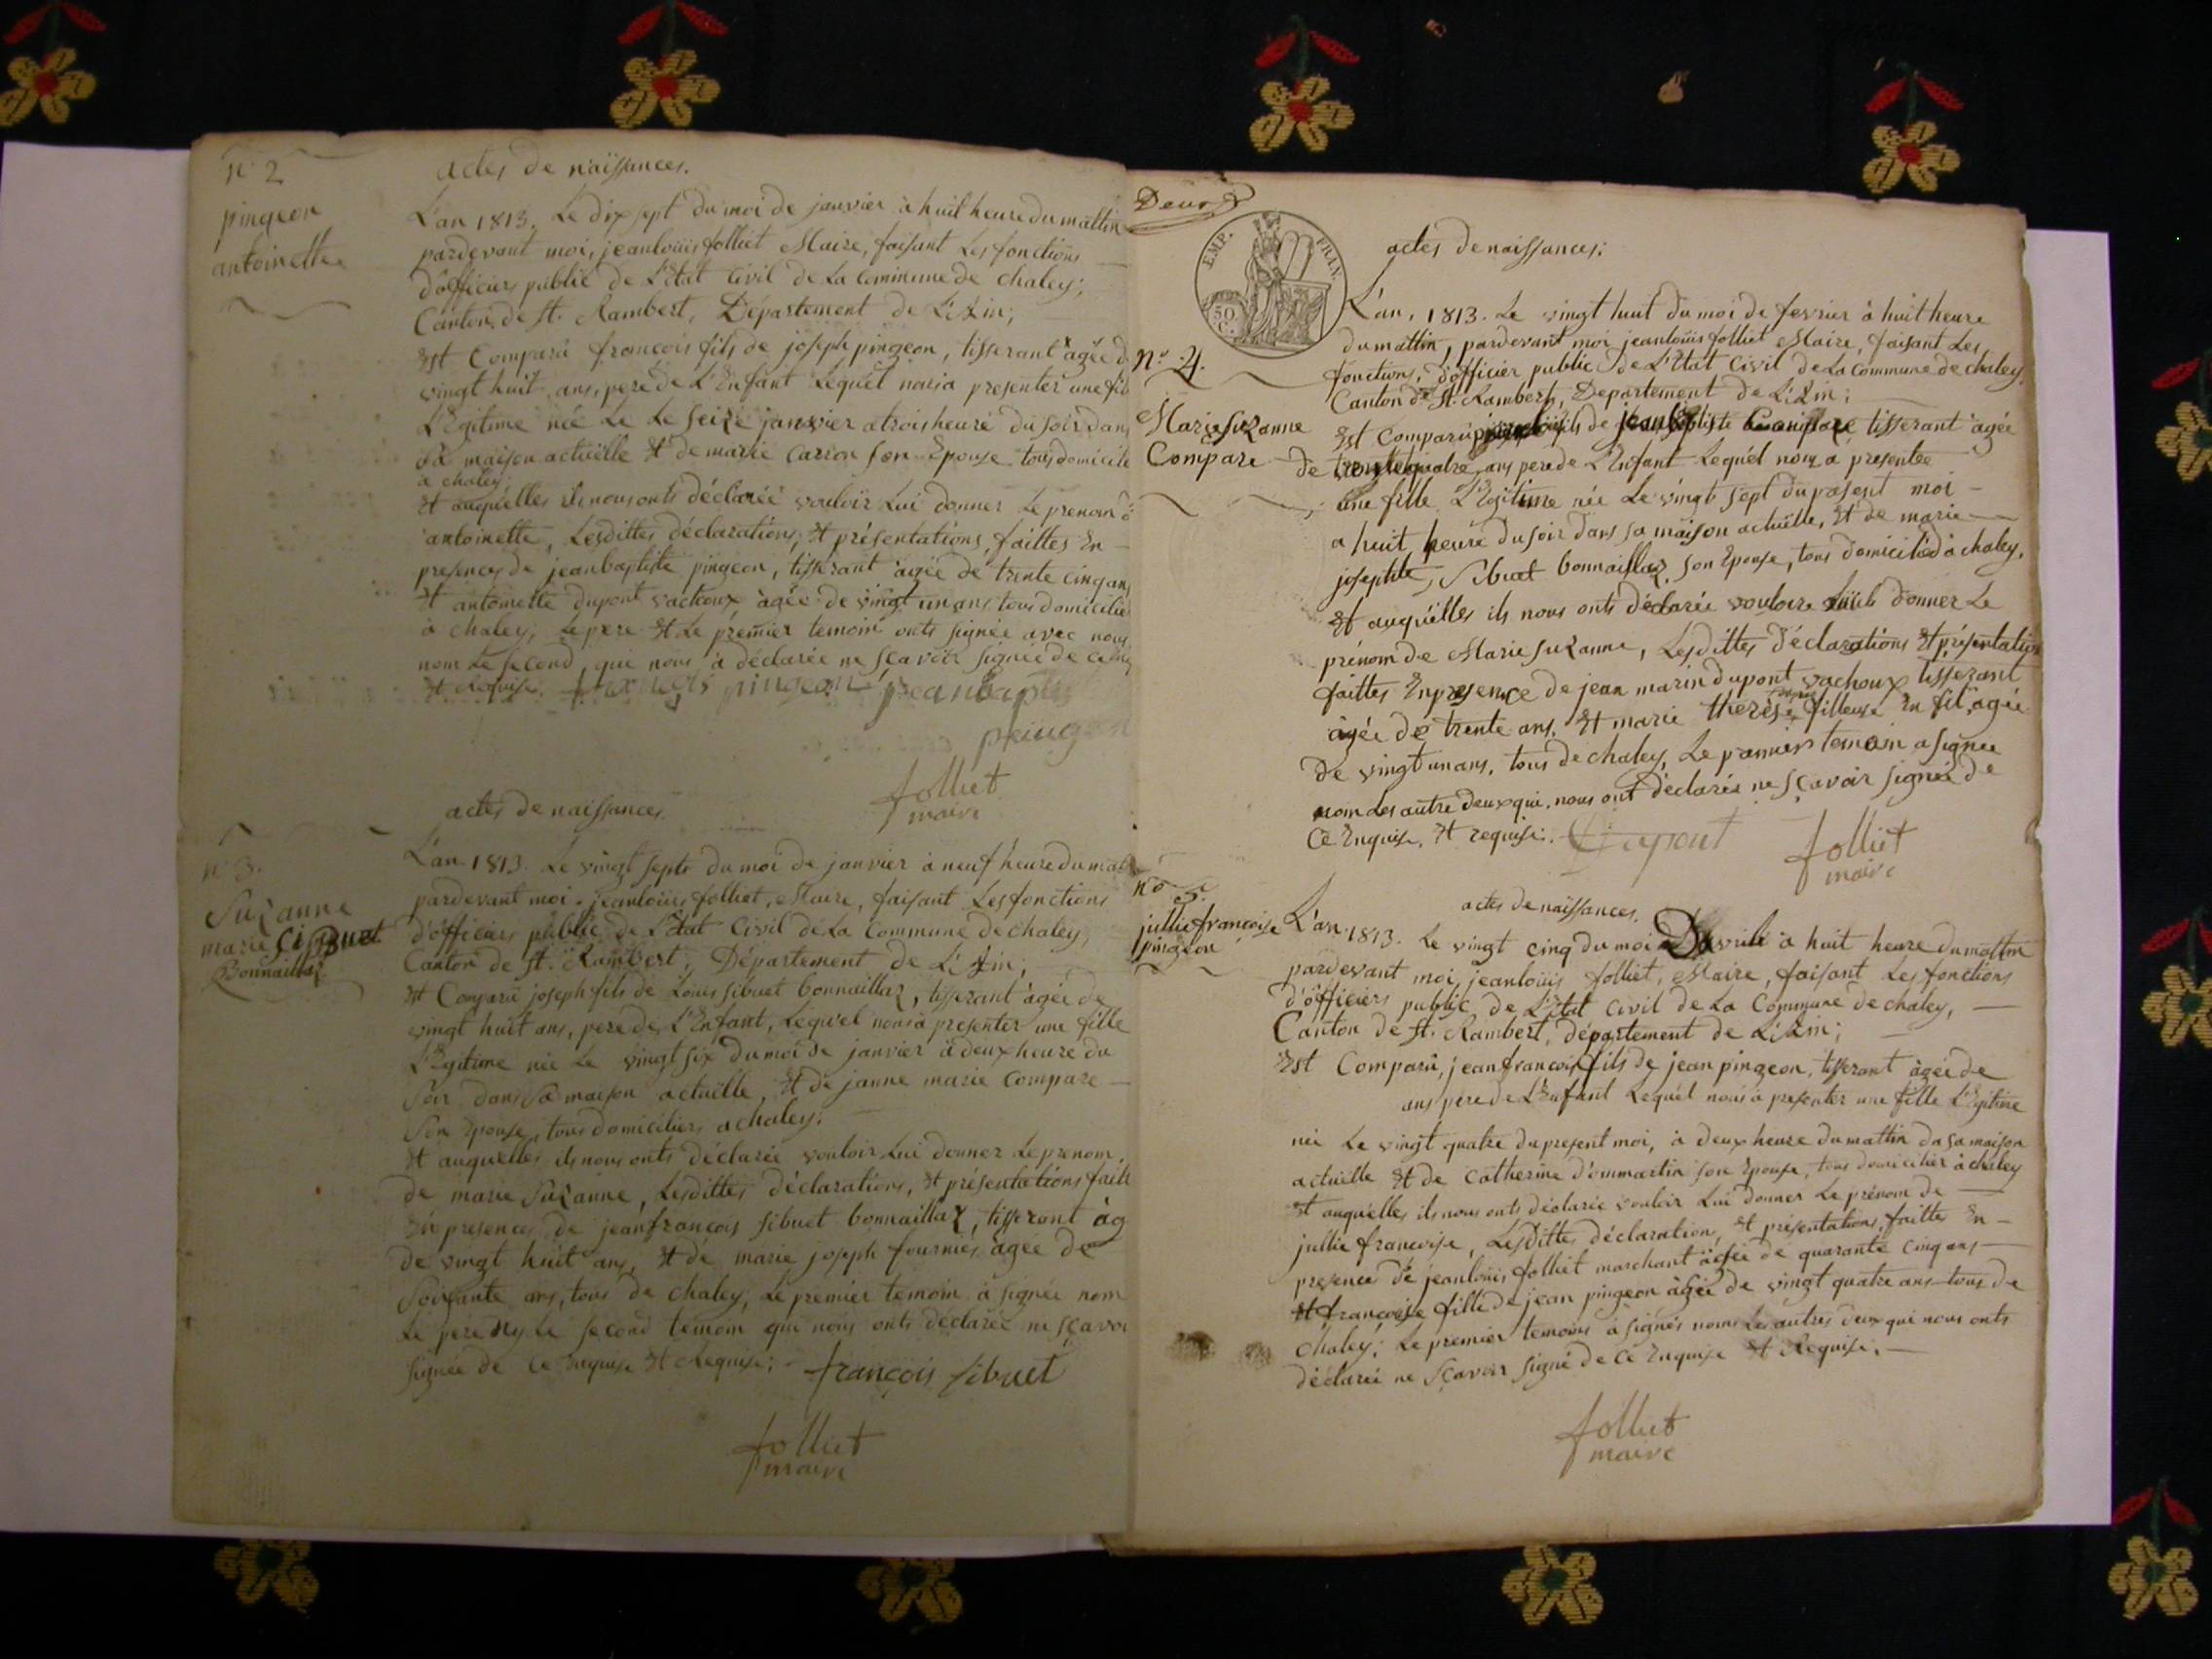 n° 2
pingeon
antoinette
actes de naissances.
L'an 1813. Le dix sept du moi de janvier à huit heure du mattin
pardevant moi, jeanlouis folliet Maire, faisant Les fonctions
d'officiers public de L'Etat Civil de La Commune de chaley;
Canton de St. Rambert, Département de L'Ain;
Est Comparû francois fils de joseph pingeon, tisserant agée d
vingt huit ans, pere de L'Enfant Lequel nous a presenter une fil
L'Egitime née Le Le seize janvier a trois heure du soir dans
sa maison actuëlle Et de marie carion son Epouse tous domicile
a chaley;
Et auquelles ils nous onts déclarée vouloir Lui donner Le prenom d
antoinette, Lesdittes déclarations, Et présentations, faittes En
presences de jeanbaptiste pingeon, tisserant agée de trente cinq ans
Et antoinette dupont vachoux agée de vingt un ans tous domicilie
a chaley; Le pere Et Le premier temoin onts signée avec nous
nom Le second, qui nous a déclarée ne sçavoir signée de ce
Et Requise. francois pingeon jeanbaptis
pingeon
folliet
maire
n° 3.
Suzanne
marie Sibuet
Bonnaillaz
actes de naissances
L'an 1813. Le vingt sept du moi de janvier a neuf heure du mat
pardevant moi jeanlouis folliet, Maire, faisant Les fonctions
d'officiers public de L'Etat Civil de La Commune de chaley,
Canton de St. Rambert, Département de L'Ain;
Est Comparû joseph fils de Louis sibuet bonnaillaz, tisserant agée de
vingt huit ans, pere de L'Enfant, Lequel nous a presenter une fille
L'Egitime née Le vingt six du moi de janvier à deux heure du
soir dans sa maison actuelle, Et de janne marie Compare
son Epouse, tous domiciliers a chaley;
Et auquelles ils nous onts déclarée vouloir Lui donner Le prenom
de marie Suzanne, Lesdittes déclarations, Et présentations faitt
En presences de jeanfrancois sibuet bonnaillaz, tisserant ag
de vingt huit ans, Et de marie joseph fournier agée de
soixante ans, tous de chaley, Le premier temoin a signée nom
Le pere ny Le second temoin qui nous onts déclarée ne sçavoi
signée de ce Enquise Et Requise; francois sibuet
folliet
maire
Deux
EMP. FRAN.
50 C.
actes de naissances;
n° 4.
Marie Suzanne
Compare
L'an, 1813. Le vingt huit du moi de fevrier à huit heure
du mattin, pardevant moi jeanlouis folliet Maire, faisant Les
fonctions, d'officier public de L'Etat Civil de La Commune de chaley,
Canton de St. Rambert, Departement de L'Ain;
Est Comparû fils de jeanbaptiste Compare tisserant agée
de trente quatre ans pere de L'Enfant Lequel nous a presentée
une fille L'Egitime née Le vingt sept du present moi
a huit heure du soir dans sa maison actuëlle, Et de marie
josephte, Sibuet bonnaillaz, son Epouse, tous domicilié à chaley,
Et auquëlles ils nous onts déclarée vouloire Lui donner Le
prénom de Marie Suzanne, Lesdittes déclarations Et présentation
faittes En presence de jean marin dupont vachoux tisserant
agée de trente ans, Et marie therése filleuse En fil, agée
de vingt un ans, tous de chaley, Le premier temoin a signée
nom Les autre deux qui nous ont déclarée ne sçavoir signée de
ce Enquise, Et requise. Dupont folliet
maire
n° 5.
jullie françoise
pingeon
actes de naissances.
L'an 1813. Le vingt cinq du moi Davril à huit heure du mattin
pardevant moi, jeanlouis folliet, Maire, faisant Les fonctions
d'officiers public de L'Etat Civil de La Commune de chaley,
Canton de St. Rambert, département de L'Ain;
Est Comparû, jean francois fils de jean pingeon, tisserant agée de
ans pere de L'Enfant Lequel nous a presenter une fille L'Egitime
née Le vingt quatre du present moi, à deux heure du mattin da sa maison
actuelle Et de Catherine dommartin son Epouse, tous domicilier à chaley
Et auquelles ils nous onts déclarée vouloir Lui donner Le prénom de
jullie francoise, Lesdittes déclaration, Et présentations, faittes En
presence de jeanlouis folliet marchant agée de quarante cinq ans
Et francoise fille de jean pingeon agée de vingt quatre ans tous de
chaley; Le premier temoins a signés noms Les autres deux qui nous onts
déclarée ne sçavoir signé de cé Enquise Et Requise;
folliet
maire